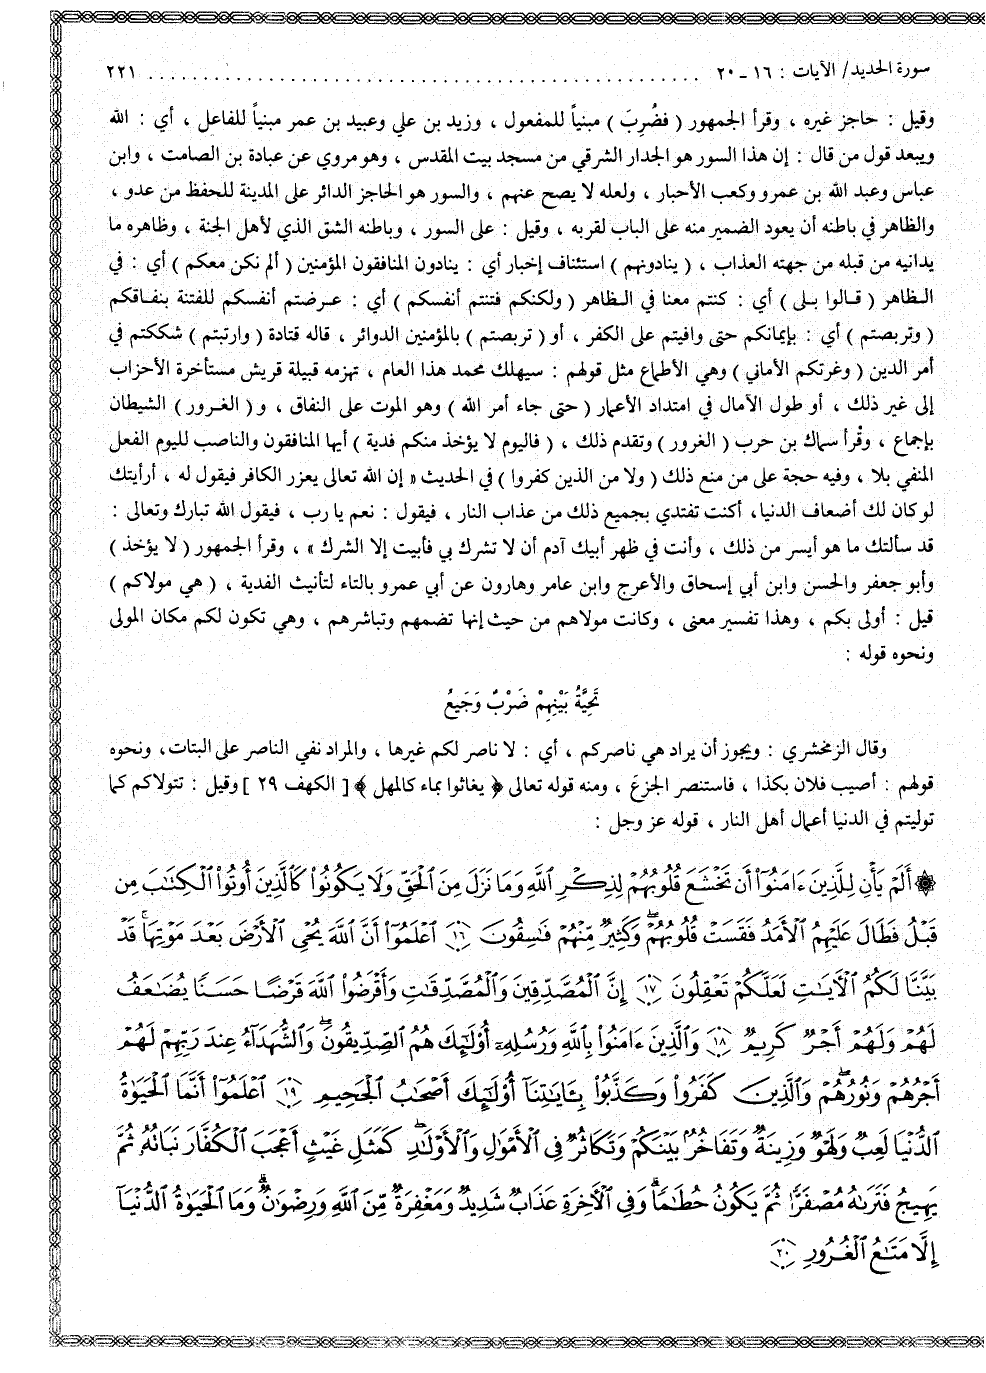 سورة الحديد/ الآيات : ١٦ ـ ٢٠ . . . . . . . . . . . . . . . . . . . . . . . . . . . . . . . . . . . . . . . . . . . . . ٢٢١
وقيل : حاجز غيره ، وقرأ الجمهور ( فضُرِبَ ) مبنياً للمفعول ، وزيد بن علي وعبيد بن عمر مبنياً للفاعل ، أي : الله
ويبعد قول من قال : إن هذا السور هو الجدار الشرقي من مسجد بيت المقدس ، وهو مروي عن عبادة بن الصامت ، وابن
عباس وعبد الله بن عمرو وكعب الأحبار ، ولعله لا يصح عنهم ، والسور هو الحاجز الدائر على المدينة للحفظ من عدو ،
والظاهر في باطنه أن يعود الضمير منه على الباب لقربه ، وقيل : على السور ، وباطنه الشق الذي لأهل الجنة ، وظاهره ما
يدانيه من قبله من جهته العذاب ، ( ينادونهم ) استئناف إخبار أي : ينادون المنافقون المؤمنين ( ألم نكن معكم ) أي : في
الظاهر ( قالوا بلى ) أي : كنتم معنا في الظاهر ( ولكنكم فتنتم أنفسكم ) أي : عرضتم أنفسكم للفتنة بنفاقكم
( وتربصتم ) أي : بإيمانكم حتى وافيتم على الكفر ، أو ( تربصتم ) بالمؤمنين الدوائر ، قاله قتادة ( وارتبتم ) شككتم في
أمر الدين ( وغرتكم الأماني ) وهي الأطماع مثل قولهم : سيهلك محمد هذا العام ، تهزمه قبيلة قريش مستأخرة الأحزاب
إلى غير ذلك ، أو طول الآمال في امتداد الأعمار ( حتى جاء أمر الله ) وهو الموت على النفاق ، و ( الغرور ) الشيطان
بإجماع ، وقُرأ سماك بن حرب ( الغرور ) وتقدم ذلك ، ( فاليوم لا يؤخذ منكم فدية ) أيها المنافقون والناصب لليوم الفعل
المنفي بلا ، وفيه حجة على من منع ذلك ( ولا من الذين كفروا ) في الحديث « إن الله تعالى يعزر الكافر فيقول له ، أرأيتك
لو كان لك أضعاف الدنيا، أكنت تفتدي بجميع ذلك من عذاب النار ، فيقول : نعم يا رب ، فيقول الله تبارك وتعالى :
قد سألتك ما هو أيسر من ذلك ، وأنت في ظهر أبيك آدم أن لا تشرك بي فأبيت إلا الشرك » ، وقرأ الجمهور ( لا يؤخذ )
وأبو جعفر والحسن وابن أبي إسحاق والأعرج وابن عامر وهارون عن أبي عمرو بالتاء لتأنيث الفدية ، ( هي مولاكم )
قيل : أولى بكم ، وهذا تفسير معنى ، وكانت مولاهم من حيث إنها تضمهم وتباشرهم ، وهي تكون لكم مكان المولى
ونحوه قوله :
تَحِيَّةُ بَيْنِهِمْ ضَرْبٌ وَجَيعُ
وقال الزمخشري : ويجوز أن يراد هي ناصركم ، أي : لا ناصر لكم غيرها ، والمراد نفي الناصر على البتات، ونحوه
قولهم : أصيب فلان بكذا ، فاستنصر الجزعَ ، ومنه قوله تعالى ﴿ يغاثوا بماء كالمهل ﴾ [ الكهف ٢٩ ] وقيل : تتولاكم كما
توليتم في الدنيا أعمال أهل النار ، قوله عز وجل :
۞ أَلَمْ يَأْنِ لِلَّذِينَ ءَامَنُوٓا۟ أَن تَخْشَعَ قُلُوبُهُمْ لِذِكْرِ ٱللَّهِ وَمَا نَزَلَ مِنَ ٱلْحَقِّ وَلَا يَكُونُوا۟ كَٱلَّذِينَ أُوتُوا۟ ٱلْكِتَـٰبَ مِن
قَبْلُ فَطَالَ عَلَيْهِمُ ٱلْأَمَدُ فَقَسَتْ قُلُوبُهُمْ ۖ وَكَثِيرٌ مِّنْهُمْ فَـٰسِقُونَ ١٦ ٱعْلَمُوٓا۟ أَنَّ ٱللَّهَ يُحْىِ ٱلْأَرْضَ بَعْدَ مَوْتِهَا ۚ قَدْ
بَيَّنَّا لَكُمُ ٱلْـَٔايَـٰتِ لَعَلَّكُمْ تَعْقِلُونَ ١٧ إِنَّ ٱلْمُصَّدِّقِينَ وَٱلْمُصَّدِّقَـٰتِ وَأَقْرَضُوا۟ ٱللَّهَ قَرْضًا حَسَنًا يُضَـٰعَفُ
لَهُمْ وَلَهُمْ أَجْرٌ كَرِيمٌ ١٨ وَٱلَّذِينَ ءَامَنُوا۟ بِٱللَّهِ وَرُسُلِهِۦٓ أُو۟لَـٰٓئِكَ هُمُ ٱلصِّدِّيقُونَ ۖ وَٱلشُّهَدَآءُ عِندَ رَبِّهِمْ لَهُمْ
أَجْرُهُمْ وَنُورُهُمْ ۖ وَٱلَّذِينَ كَفَرُوا۟ وَكَذَّبُوا۟ بِـَٔايَـٰتِنَآ أُو۟لَـٰٓئِكَ أَصْحَـٰبُ ٱلْجَحِيمِ ١٩ ٱعْلَمُوٓا۟ أَنَّمَا ٱلْحَيَوٰةُ
ٱلدُّنْيَا لَعِبٌ وَلَهْوٌ وَزِينَةٌ وَتَفَاخُرٌۢ بَيْنَكُمْ وَتَكَاثُرٌ فِى ٱلْأَمْوَٰلِ وَٱلْأَوْلَـٰدِ ۖ كَمَثَلِ غَيْثٍ أَعْجَبَ ٱلْكُفَّارَ نَبَاتُهُۥ ثُمَّ
يَهِيجُ فَتَرَىٰهُ مُصْفَرًّا ثُمَّ يَكُونُ حُطَـٰمًا ۖ وَفِى ٱلْـَٔاخِرَةِ عَذَابٌ شَدِيدٌ وَمَغْفِرَةٌ مِّنَ ٱللَّهِ وَرِضْوَٰنٌ ۚ وَمَا ٱلْحَيَوٰةُ ٱلدُّنْيَآ
إِلَّا مَتَـٰعُ ٱلْغُرُورِ ٢٠